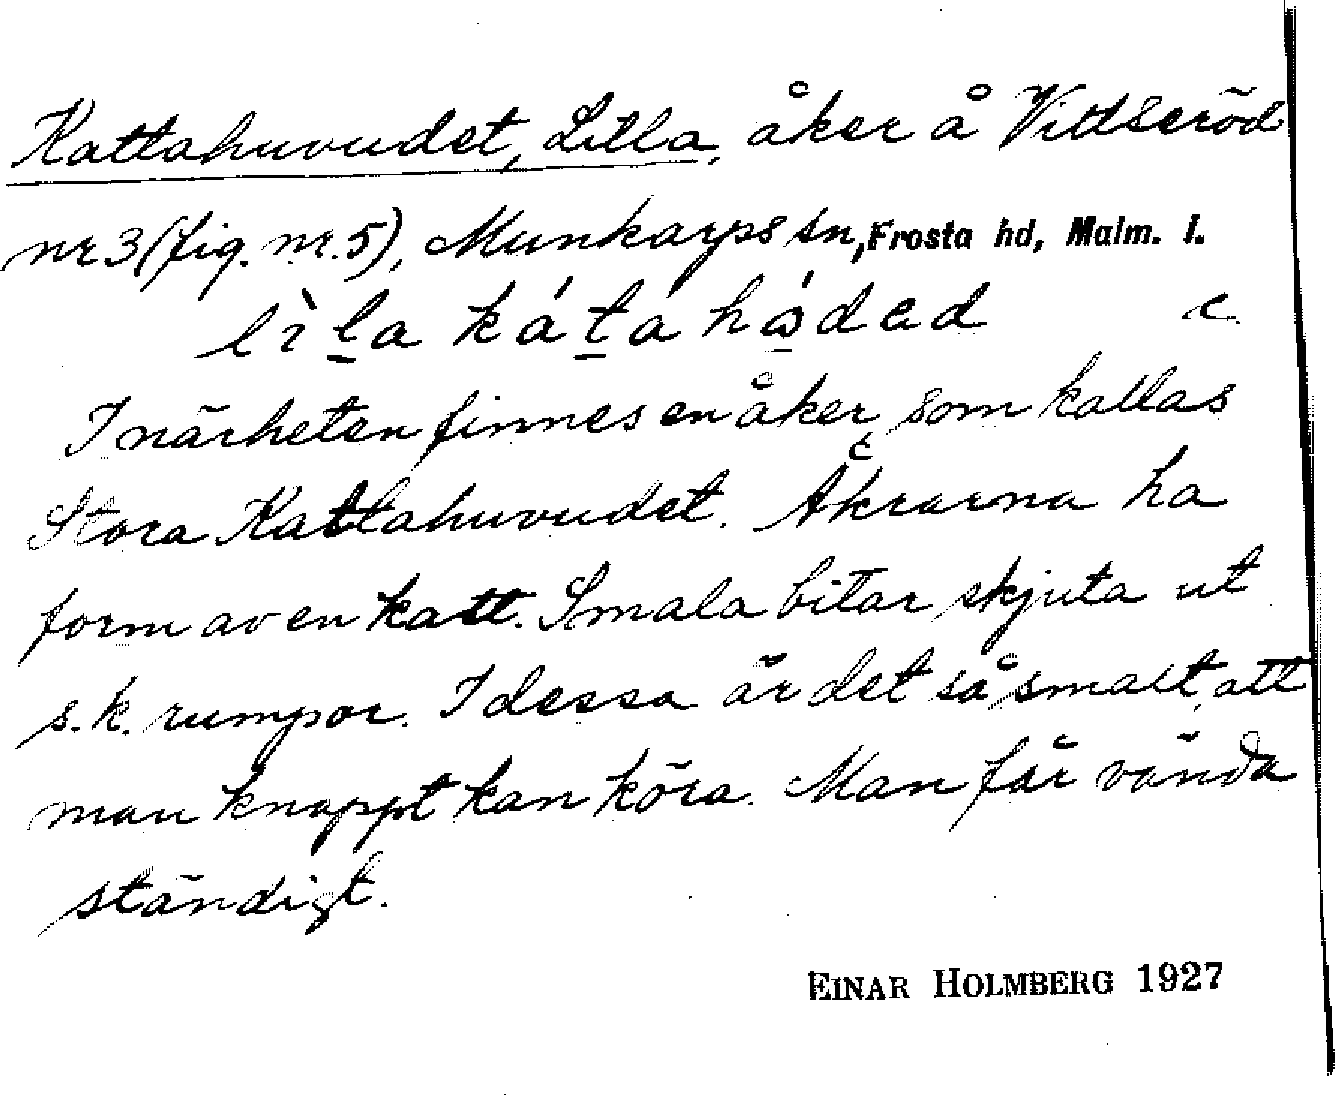 Kattahuvudet, Lilla, åker å Vittseröd
nr 3 (fig. nr. 5), Munkarps sn, Frosta hd, Malm. l.
lìla káta hådad c.
I närheten finnes en åker, som kallas
Stora Kattahuvudet. Åkrarna ha
form av en katt. Smala bitar skjuta ut
s.k. rumpor. I dessa är det så smalt, att
man knappt kan köra. Man får vända
ständigt.
EINAR HOLMBERG 1927